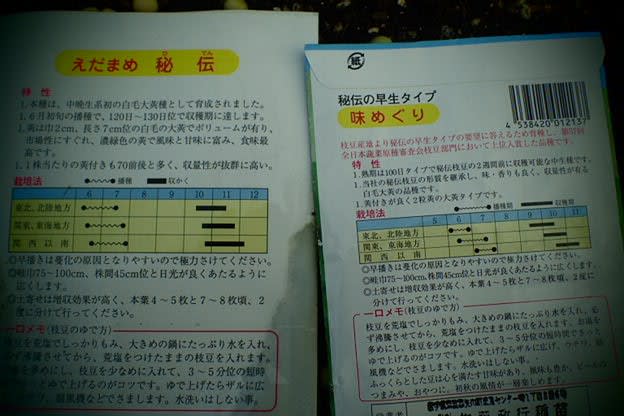 えだまめ 秘伝
ひ でん
特性
1.本種は、中晩生系初の白毛大莢種として育成されました。
1.6月初旬の播種で、120日〜130日位で収穫期に達します。
1.莢は巾2cm、長さ7cm位の白毛の大莢でボリュームが有り、
市場性にすぐれ、濃緑色の莢で風味と甘味に富み、食味最
高です。
1.1株当たりの莢付きも70前後と多く、収量性が抜群に高い。
栽培法
播種 収かく
6 7 8 9 10 11 12
東北、北陸地方
関東、東海地方
関西以南
◎早播きは蔓化の原因となりやすいので極力さけてください。
◎畦巾75〜100cm、株間45cm位と日光が良くあたるように
広くします。
◎土寄せは増収効果が高く、本葉4〜5枚と7〜8枚頃、2
度に分けて行ってください。
一口メモ(枝豆のゆで方)
枝豆を荒塩でしっかりもみ、大きめの鍋にたっぷり水を入れ、
必ず沸騰させてから、荒塩をつけたままの枝豆を入れます。
を多めにし、枝豆を少なめに入れて、3〜5分位の短時
ゆで上げるのがコツです。ゆで上げたらザルに広
扇風機などでさまします。水洗いはしない事。
紙
秘伝の早生タイプ
味めぐり
4 538420 012137
枝豆産地より秘伝の早生タイプの要望に答えるため育種し、第57回
全日本蔬菜原種審査会枝豆部門において上位入賞した品種です。
特性
1.熟期は100日タイプで秘伝枝豆の2週間前に収穫可能な中生種です。
1.当社の秘伝枝豆の形質を継承し、味・香りも良く、収量性が有る
白毛大莢の品種です。
1.莢付きが良く2粒莢の大莢タイプです。
栽培法
播種期 収穫期
5 6 7 8 9 10 11
東北、北陸地方
関東、東海地方
関西以南
◎早播きは蔓化の原因となりやすいので極力さけてください。
◎畦巾75〜100cm、株間45cm位と日光が良くあたるように広くします。
◎土寄せは増収効果が高く、本葉4〜5枚と7〜8枚頃、2度に
分けて行ってください。
一口メモ(枝豆のゆで方)
枝豆を荒塩でしっかりもみ、大きめの鍋にたっぷり水を入れ、必
ず沸騰させてから、荒塩をつけたままの枝豆を入れます。お塩を
多めにし、枝豆を少なめに入れて、3〜5分位の短時間でさっと
ゆで上げるのがコツです。ゆで上げたらザルに広げ、ウチワ、扇
風機などでさまします。水洗いはしない事。
ふっくらとした豆は心を満たす甘味があり、風味も豊か、ビールの
つまみや、おやつに、初秋の風情が一層楽しめます。